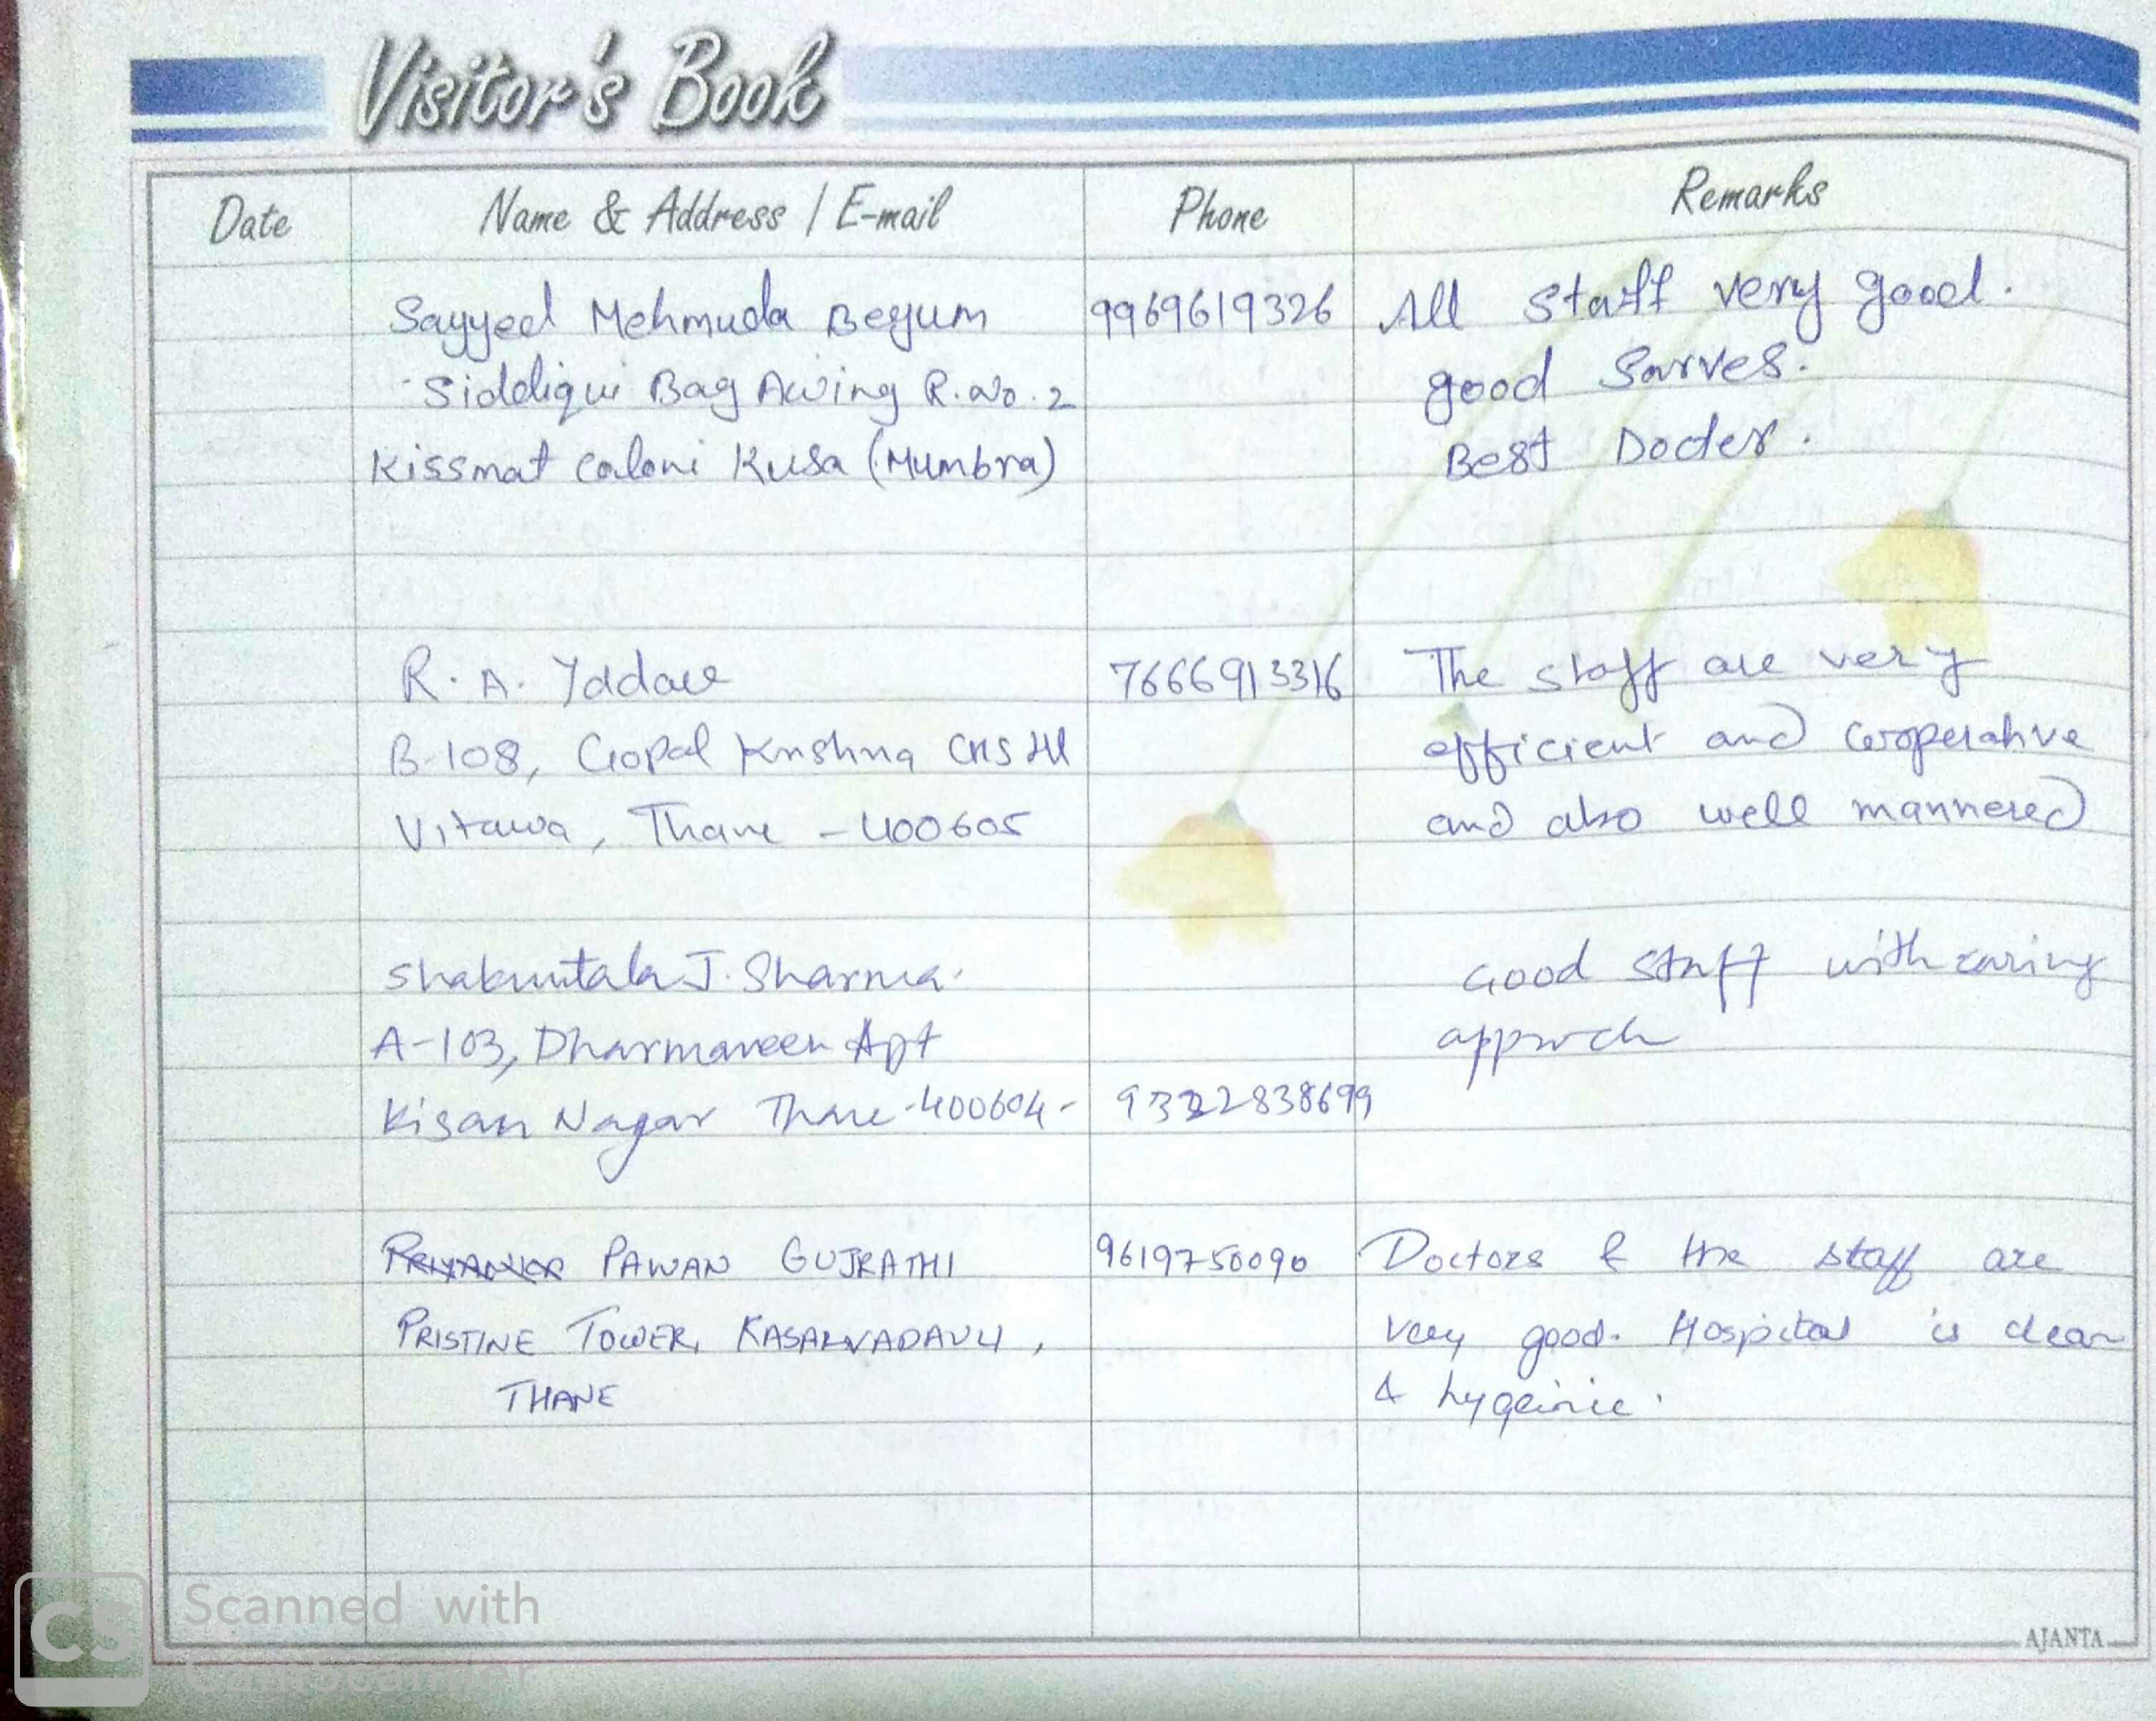 Visitor's Book
Date Name & Address / E-mail Phone Remarks
Sayyed Mehmuda Begum 9969619326 All staff very good.
Siddiqui Bag A wing R.No.2 good Sarves.
Kissmat Caloni Kusa (Mumbra) Best Docter.
R. A. Yadav 7666913316 The staff are very
B-108, Gopal Krishna CHS Ltd efficient and cooperative
Vitawa, Thane - 400605 and also well mannered
Shakuntala J. Sharma. Good staff with caring
A-103, Dharmaveer Apt approch
Kisan Nagar Thane-400604- 9322838699
PAWAN GUJRATHI 9619750090 Doctors & the staff are
PRISTINE TOWER, KASARVADAVLI, very good. Hospital is clean
THANE & hygeinic.
CS Scanned with
CamScanner
AJANTA